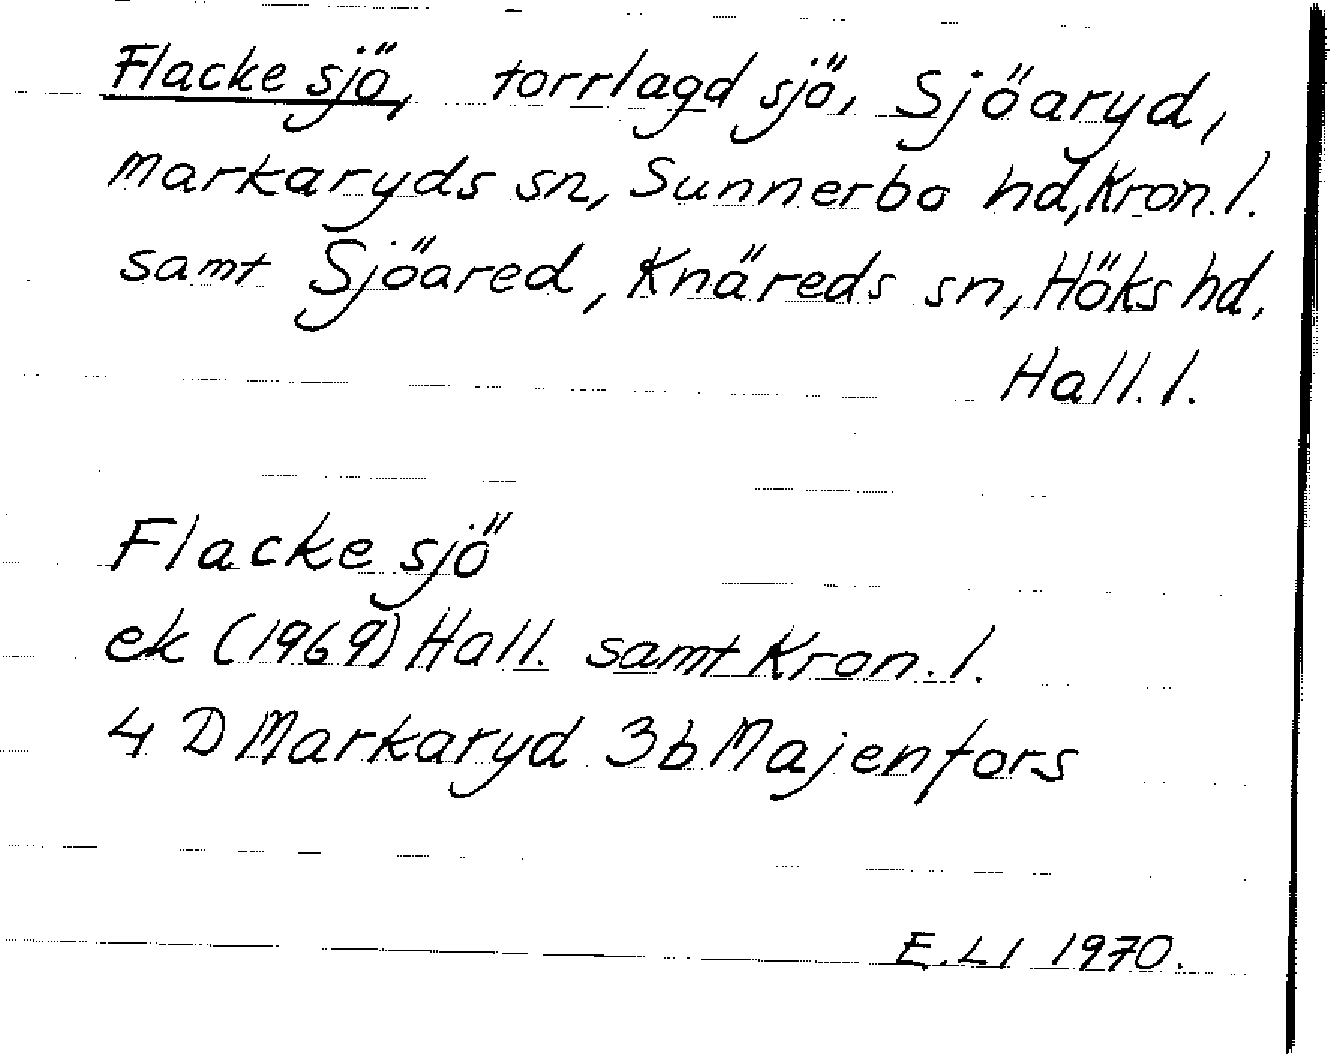 Flacke sjö, torrlagd sjö, Sjöaryd,
Markaryds sn, Sunnerbo hd, Kron. l.
samt Sjöared, Knäreds sn, Höks hd,
Hall. l.
Flacke sjö
ek (1969) Hall. samt Kron. l.
4 D Markaryd 3b Majenfors
E. Ll 1970.